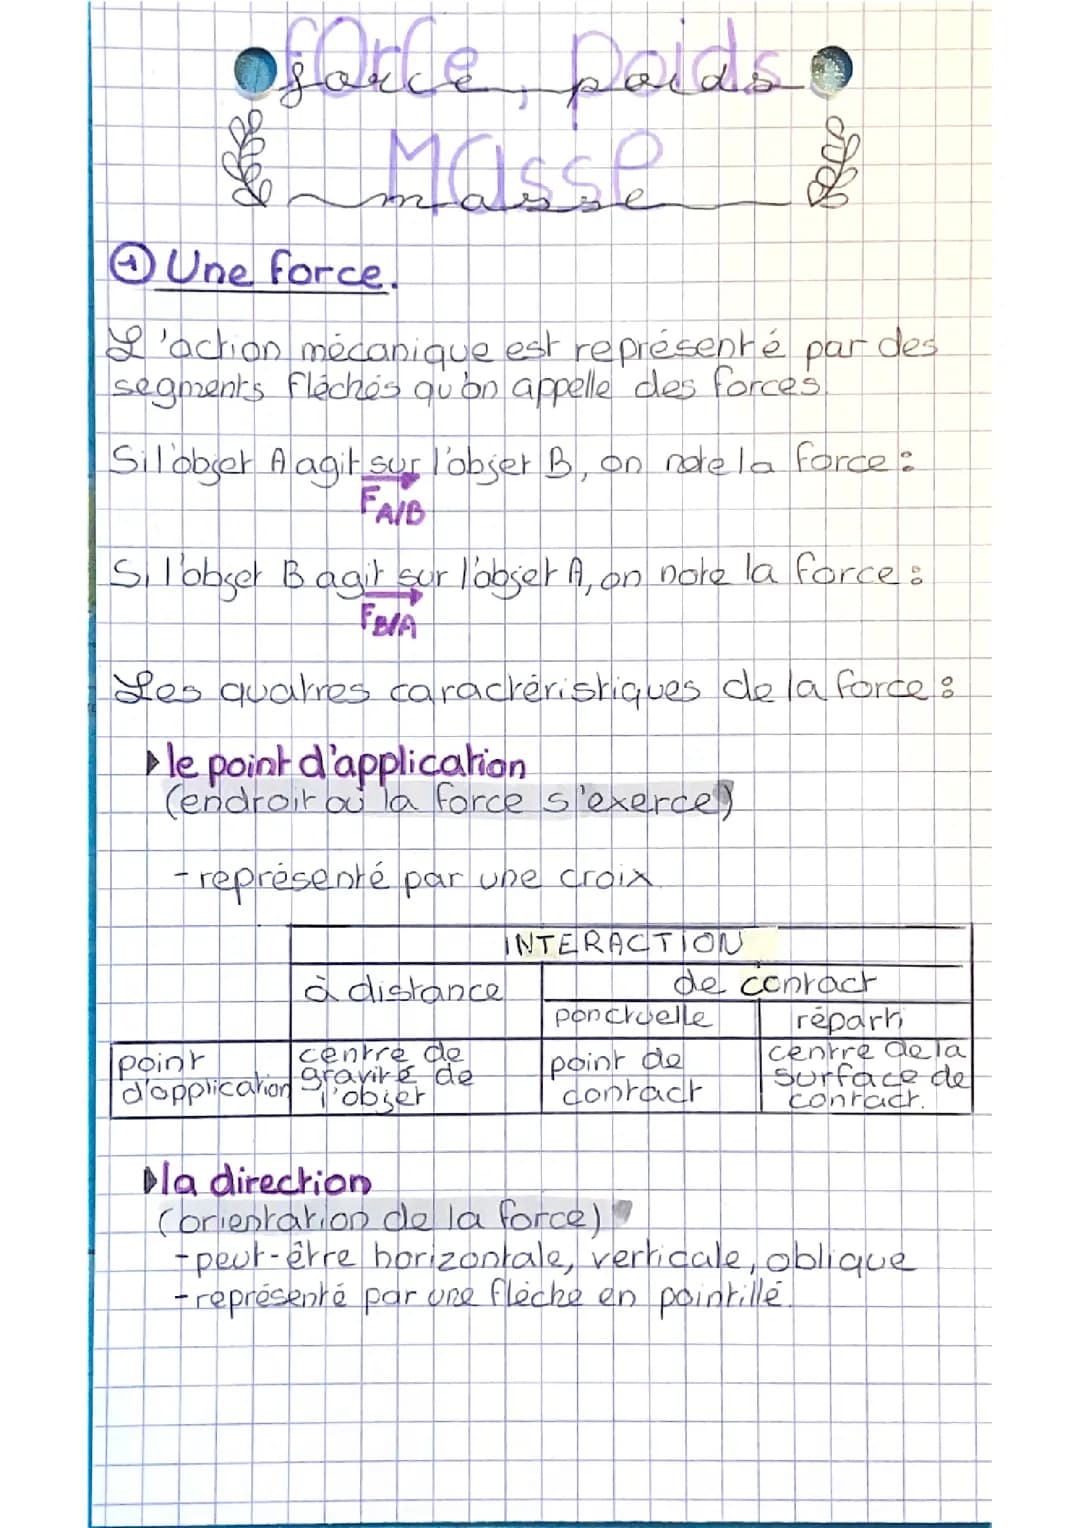 force, poids
force, poids
Masse
masse
1 Une force.
L'action mécanique est représenté par des
segments fléchés qu'on appelle des forces.
Si l'objet A agit sur l'objet B, on note la force :
F A/B
Si l'objet B agit sur l'objet A, on note la force :
F B/A
Les quatres caractéristiques de la force :
▸ le point d'application
(endroit où la force s'exerce)
- représenté par une croix.
INTERACTION
à distance
de contact
ponctuelle
réparti
point
d'application
centre de
gravité de
l'objet
point de
contact
centre de la
surface de
contact.
▸ la direction
(orientation de la force)
- peut-être horizontale, verticale, oblique
- représenté par une flèche en pointillé.